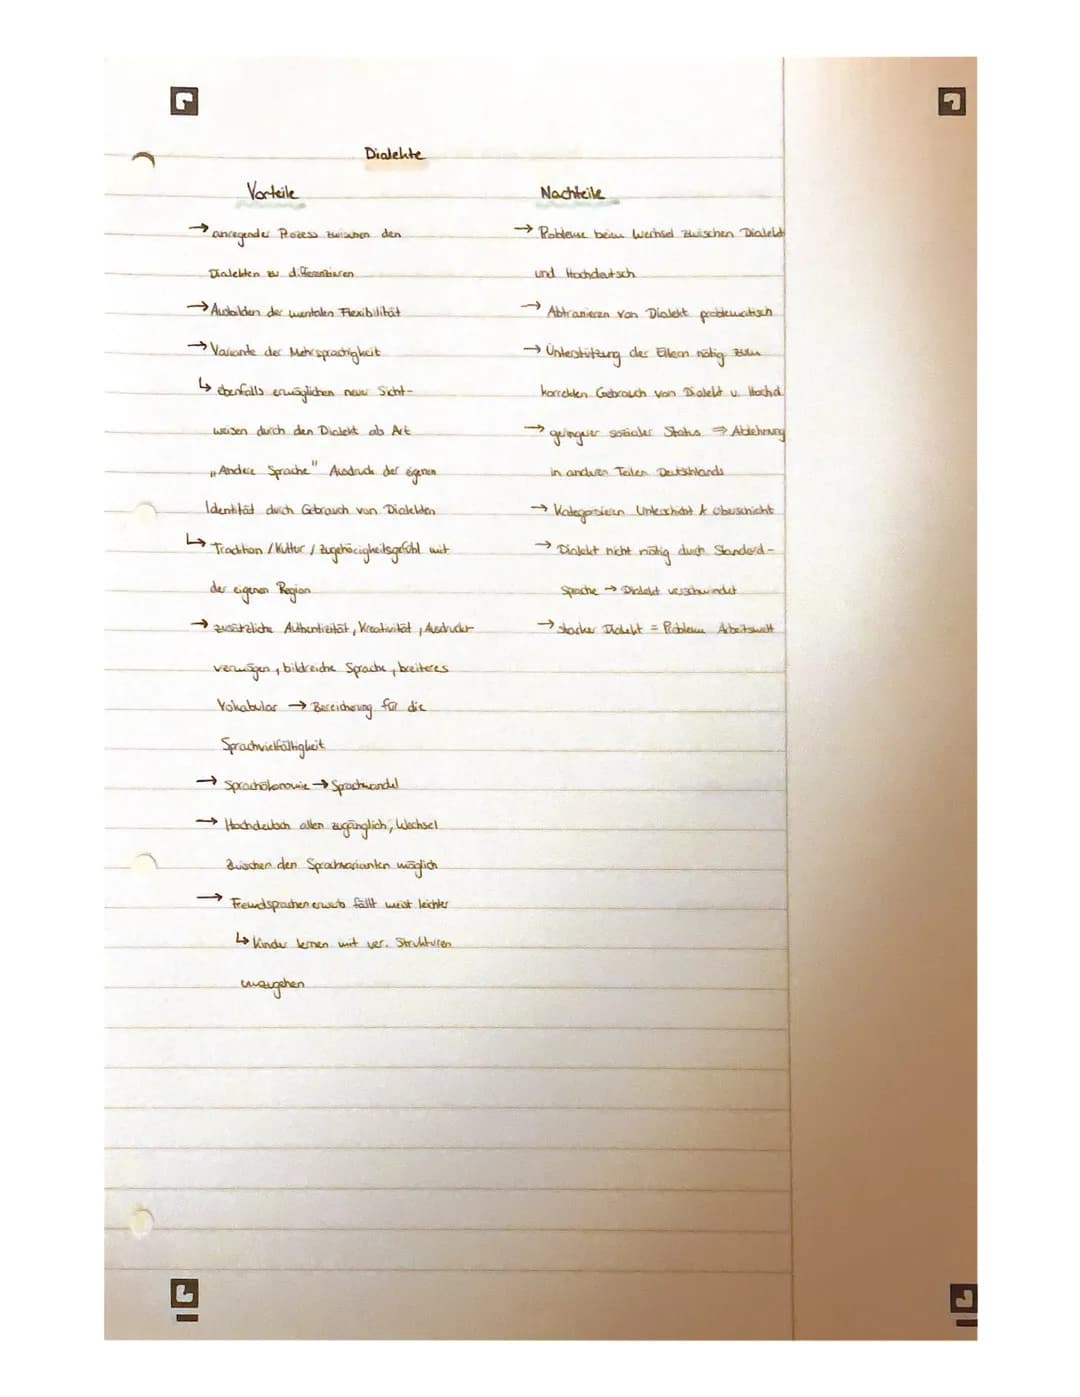 Dialekte
Vorteile
→ anregender Prozess zwischen den
Dialekten zu differenzieren
→ Ausbilden der mentalen Flexibilität
→ Variante der Mehrsprachigkeit
↳ ebenfalls ermöglichen neuer Sicht-
weisen durch den Dialekt als Art
„Andere Sprache" Ausdruck der eigenen
Identität durch Gebrauch von Dialekten
↳ Tradition / Kultur / Zugehörigkeitsgefühl mit
der eigenen Region
→ zusätzliche Authentizität, Kreativität, Ausdrucks-
vermögen, bildreiche Sprache, breiteres
Vokabular → Bereicherung für die
Sprachvielfältigkeit
→ Sprachökonomie → Sprachwandel
→ Hochdeutsch allen zugänglich, Wechsel
zwischen den Sprachvarianten möglich
→ Fremdsprachenerwerb fällt meist leichter
↳ Kinder lernen mit ver. Strukturen
umzugehen
Nachteile
→ Probleme beim Wechsel zwischen Dialekt
und Hochdeutsch
→ Abtranieren von Dialekt problematisch
→ Unterstützung der Eltern nötig zum
korrekten Gebrauch von Dialekt u. Hochd.
→ geringerer sozialer Status ⇒ Ablehnung
in anderen Teilen Deutschlands
→ Kategorisieren Unterschicht & Oberschicht
→ Dialekt nicht nötig durch Standard-
sprache → Dialekt verschwindet
→ starker Dialekt = Probleme Arbeitswelt